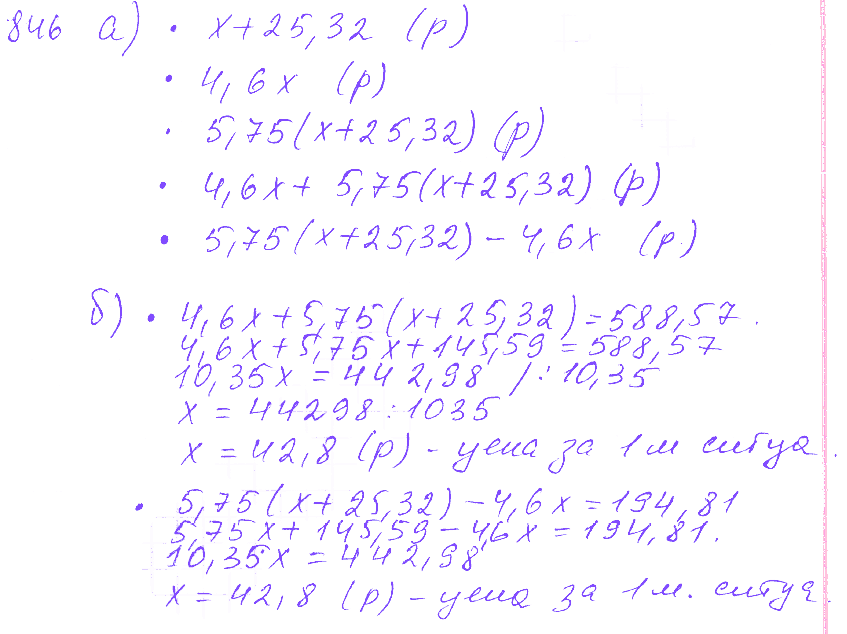 846 а) • x+25,32 (р)
• 4,6x (р)
• 5,75(x+25,32) (р)
• 4,6x+ 5,75(x+25,32) (р)
• 5,75(x+25,32) – 4,6x (р)
б) • 4,6x+5,75(x+25,32)=588,57.
4,6x+5,75x+145,59=588,57
10,35x=442,98 /:10,35
x=44298:1035
x=42,8 (р) – цена за 1м ситца.
• 5,75(x+25,32)–4,6x=194,81
5,75x+145,59–4,6x=194,81.
10,35x=442,98
x=42,8 (р) – цена за 1м. ситца.